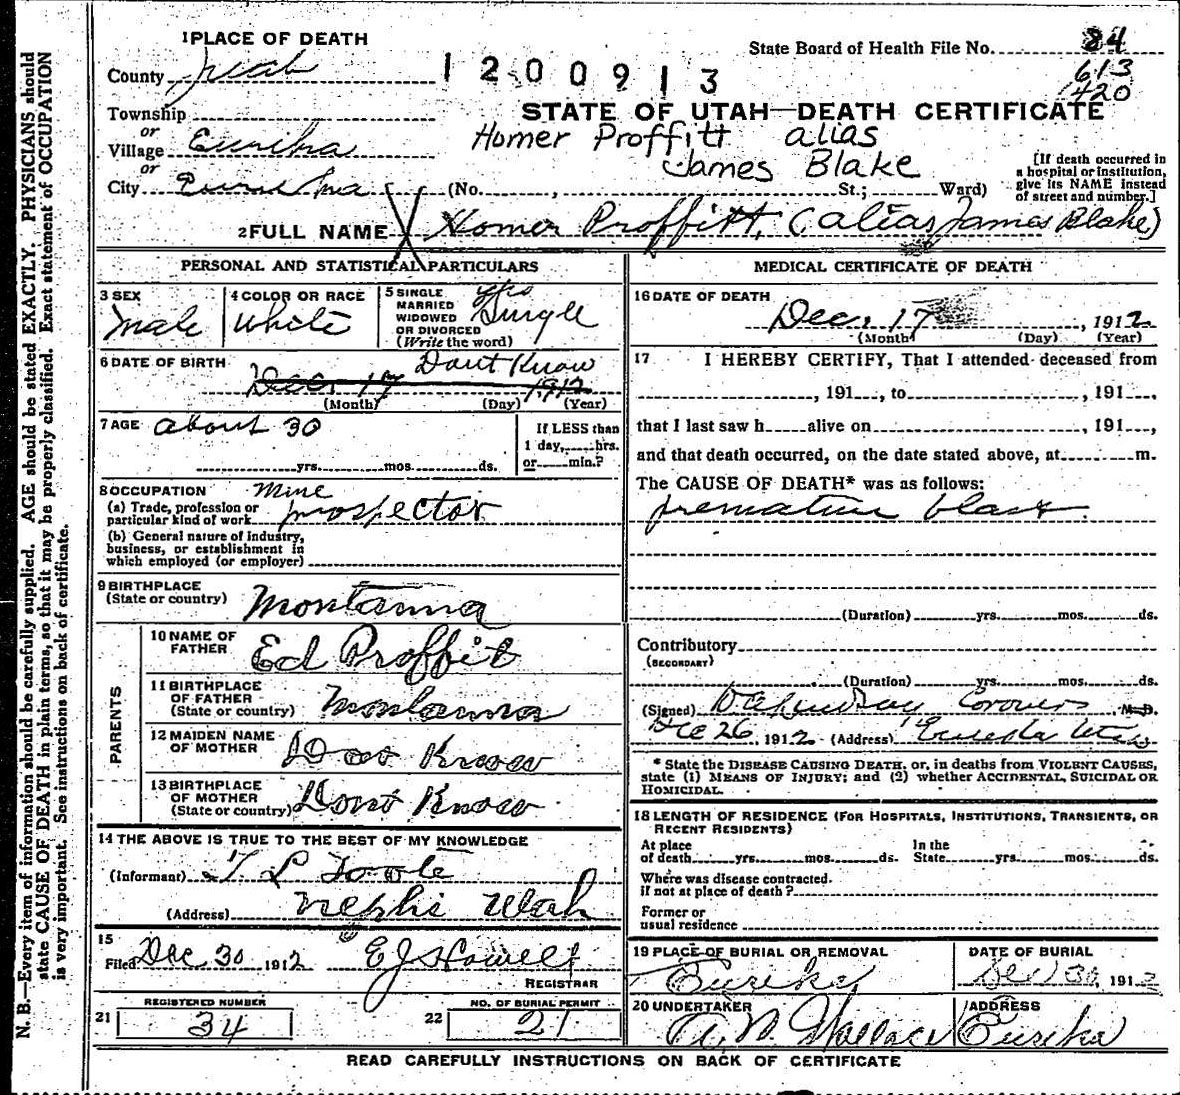 1 PLACE OF DEATH
State Board of Health File No. 84
County Juab
1200913
613
420
Township
STATE OF UTAH—DEATH CERTIFICATE
or
Village Eureka
Homer Proffitt alias
James Blake
or
City Eureka (No. , St.; Ward)
[If death occurred in a hospital or institution, give its NAME instead of street and number.]
2 FULL NAME X Homer Proffitt, (alias James Blake)
PERSONAL AND STATISTICAL PARTICULARS
3 SEX
Male
4 COLOR OR RACE
White
5 SINGLE
MARRIED
WIDOWED
OR DIVORCED
(Write the word)
Single
6 DATE OF BIRTH Dont Know
Dec. 17 1912
(Month) (Day) (Year)
7 AGE about 30
yrs. mos. ds.
If LESS than
1 day, hrs.
or min.?
8 OCCUPATION
(a) Trade, profession or
particular kind of work
Mine
prospector
(b) General nature of industry,
business, or establishment in
which employed (or employer)
9 BIRTHPLACE
(State or country) Montanna
PARENTS
10 NAME OF
FATHER Ed Proffit
11 BIRTHPLACE
OF FATHER
(State or country) Montanna
12 MAIDEN NAME
OF MOTHER Dont Know
13 BIRTHPLACE
OF MOTHER
(State or country) Dont Know
14 THE ABOVE IS TRUE TO THE BEST OF MY KNOWLEDGE
(Informant) T. L. Foote
(Address) Nephi Utah
15
Filed Dec 30 1912 E J Howell
REGISTRAR
21
REGISTERED NUMBER
34
22
NO. OF BURIAL PERMIT
21
MEDICAL CERTIFICATE OF DEATH
16 DATE OF DEATH
Dec. 17, 1912
(Month) (Day) (Year)
17 I HEREBY CERTIFY, That I attended deceased from
, 191 , to , 191 ,
that I last saw h alive on , 191 ,
and that death occurred, on the date stated above, at m.
The CAUSE OF DEATH* was as follows:
premature blast.
(Duration) yrs. mos. ds.
Contributory
(SECONDARY)
(Duration) yrs. mos. ds.
(Signed) Coroner, M.D.
Dec 26, 1912 (Address) Eureka Utah
* State the DISEASE CAUSING DEATH, or, in deaths from VIOLENT CAUSES,
state (1) MEANS OF INJURY; and (2) whether ACCIDENTAL, SUICIDAL OR
HOMICIDAL.
18 LENGTH OF RESIDENCE (FOR HOSPITALS, INSTITUTIONS, TRANSIENTS, OR
RECENT RESIDENTS)
At place
of death yrs. mos. ds.
In the
State yrs. mos. ds.
Where was disease contracted.
if not at place of death?
Former or
usual residence
19 PLACE OF BURIAL OR REMOVAL
Eureka
DATE OF BURIAL
Dec 30, 1912
20 UNDERTAKER
A. N. Wallace
ADDRESS
Eureka
READ CAREFULLY INSTRUCTIONS ON BACK OF CERTIFICATE
N. B.—Every item of information should be carefully supplied. AGE should be stated EXACTLY. PHYSICIANS should
state CAUSE OF DEATH in plain terms, so that it may be properly classified. Exact statement of OCCUPATION
is very important. See instructions on back of certificate.